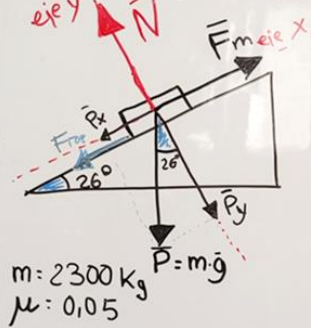 eje y
N̄
F̄m eje x
P̄x
Froz
26°
26°
P̄y
P̄ = m·ḡ
m: 2300 Kg
μ: 0,05